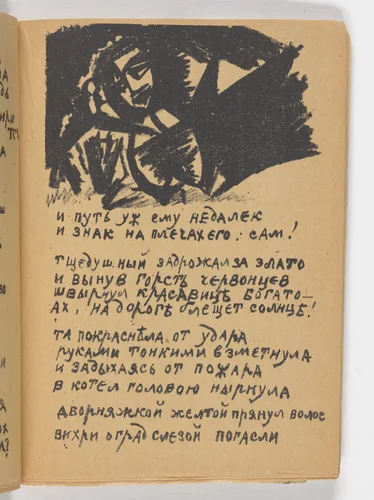 и путь уж ему недалек
и знак на плечах его: сам!
тщедушный задрожал за злато
и вынув горсть червонцев
швырнул красавице богато-
ах, на дороге блещет солнце!
та покраснѣла от удара
руками тонкими взметнула
и задыхаясь от пожара
в котел головою нырнула
дворняжкой желтой прянул волос
вихри оград слезой погасли